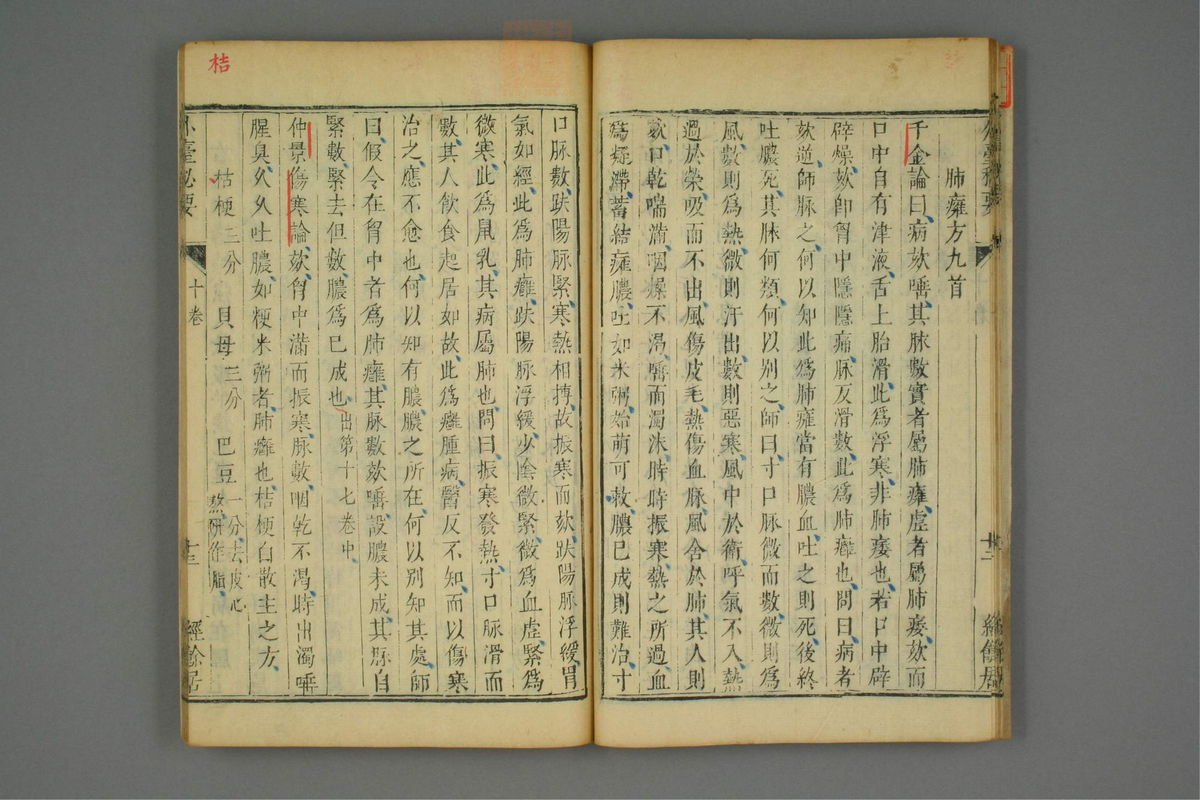 外臺秘要
十二
經餘居
肺癰方九首
千金論曰病欬唾其脉數實者屬肺癰虛者屬肺痿欬而
口中自有津液舌上胎滑此為浮寒非肺痿也若口中辟
辟燥欬卽胷中隱隱痛脉反滑數此為肺癰也問曰病者
欬逆師脉之何以知此為肺癰當有膿血吐之則死後終
吐膿死其脉何類何以别之師曰寸口脉微而數微則爲
風數則爲熱微則汗出數則惡寒風中於衛呼氣不入熱
過於榮吸而不出風傷皮毛熱傷血脉風舍於肺其人則
欬口乾喘滿咽燥不渴唾而濁沫時時振寒熱之所過血
爲凝滯蓄結癰膿吐如米粥始萌可救膿已成則難治寸
口脉數趺陽脉緊寒熱相搏故振寒而欬趺陽脉浮緩胃
氣如經此爲肺癰趺陽脉浮緩少陰微緊微爲血虛緊爲
微寒此爲鼠乳其病屬肺也問曰振寒發熱寸口脉滑而
數其人飲食起居如故此爲癰腫病醫反不知而以傷寒
治之應不愈也何以知有膿膿之所在何以别知其處師
曰假令在胷中者爲肺癰其脉數欬唾設膿未成其脉自
緊數緊去但數膿爲已成也出第十七卷中
仲景傷寒論欬胷中滿而振寒脉數咽乾不渴時出濁唾
腥臭久久吐膿如粳米粥者肺癰也桔梗白散主之方
桔梗三分 貝母三分 巴豆一分去皮心熬研作脂
外臺秘要
十卷
十三
經餘居
桔